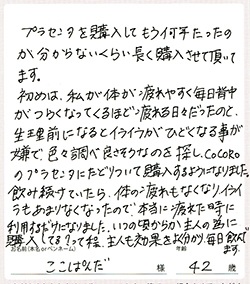 プラセンタを購入してもう何年たったの
か分からないくらい長く購入させて頂いて
ます。
初めは、私が体が疲れやすく毎日背中
がつらくなってくるほど疲れる日々だったのと、
生理前になるとイライラがひどくなる事が
嫌で、色々調べ良さそうなのを探し、COCORO
のプラセンタにたどりついて購入するようになりました。
飲み続けていたら、体の疲れもなくなりイライ
ラもあまりなくなったので、本当に疲れた時に
利用するだけになりました。いつの頃からか主人の為に
購入してる?って程、主人も効果をよく分かり、毎日飲んで
ます。
お名前(本名orペンネーム) 年齢
ここぱんだ 様 42 歳